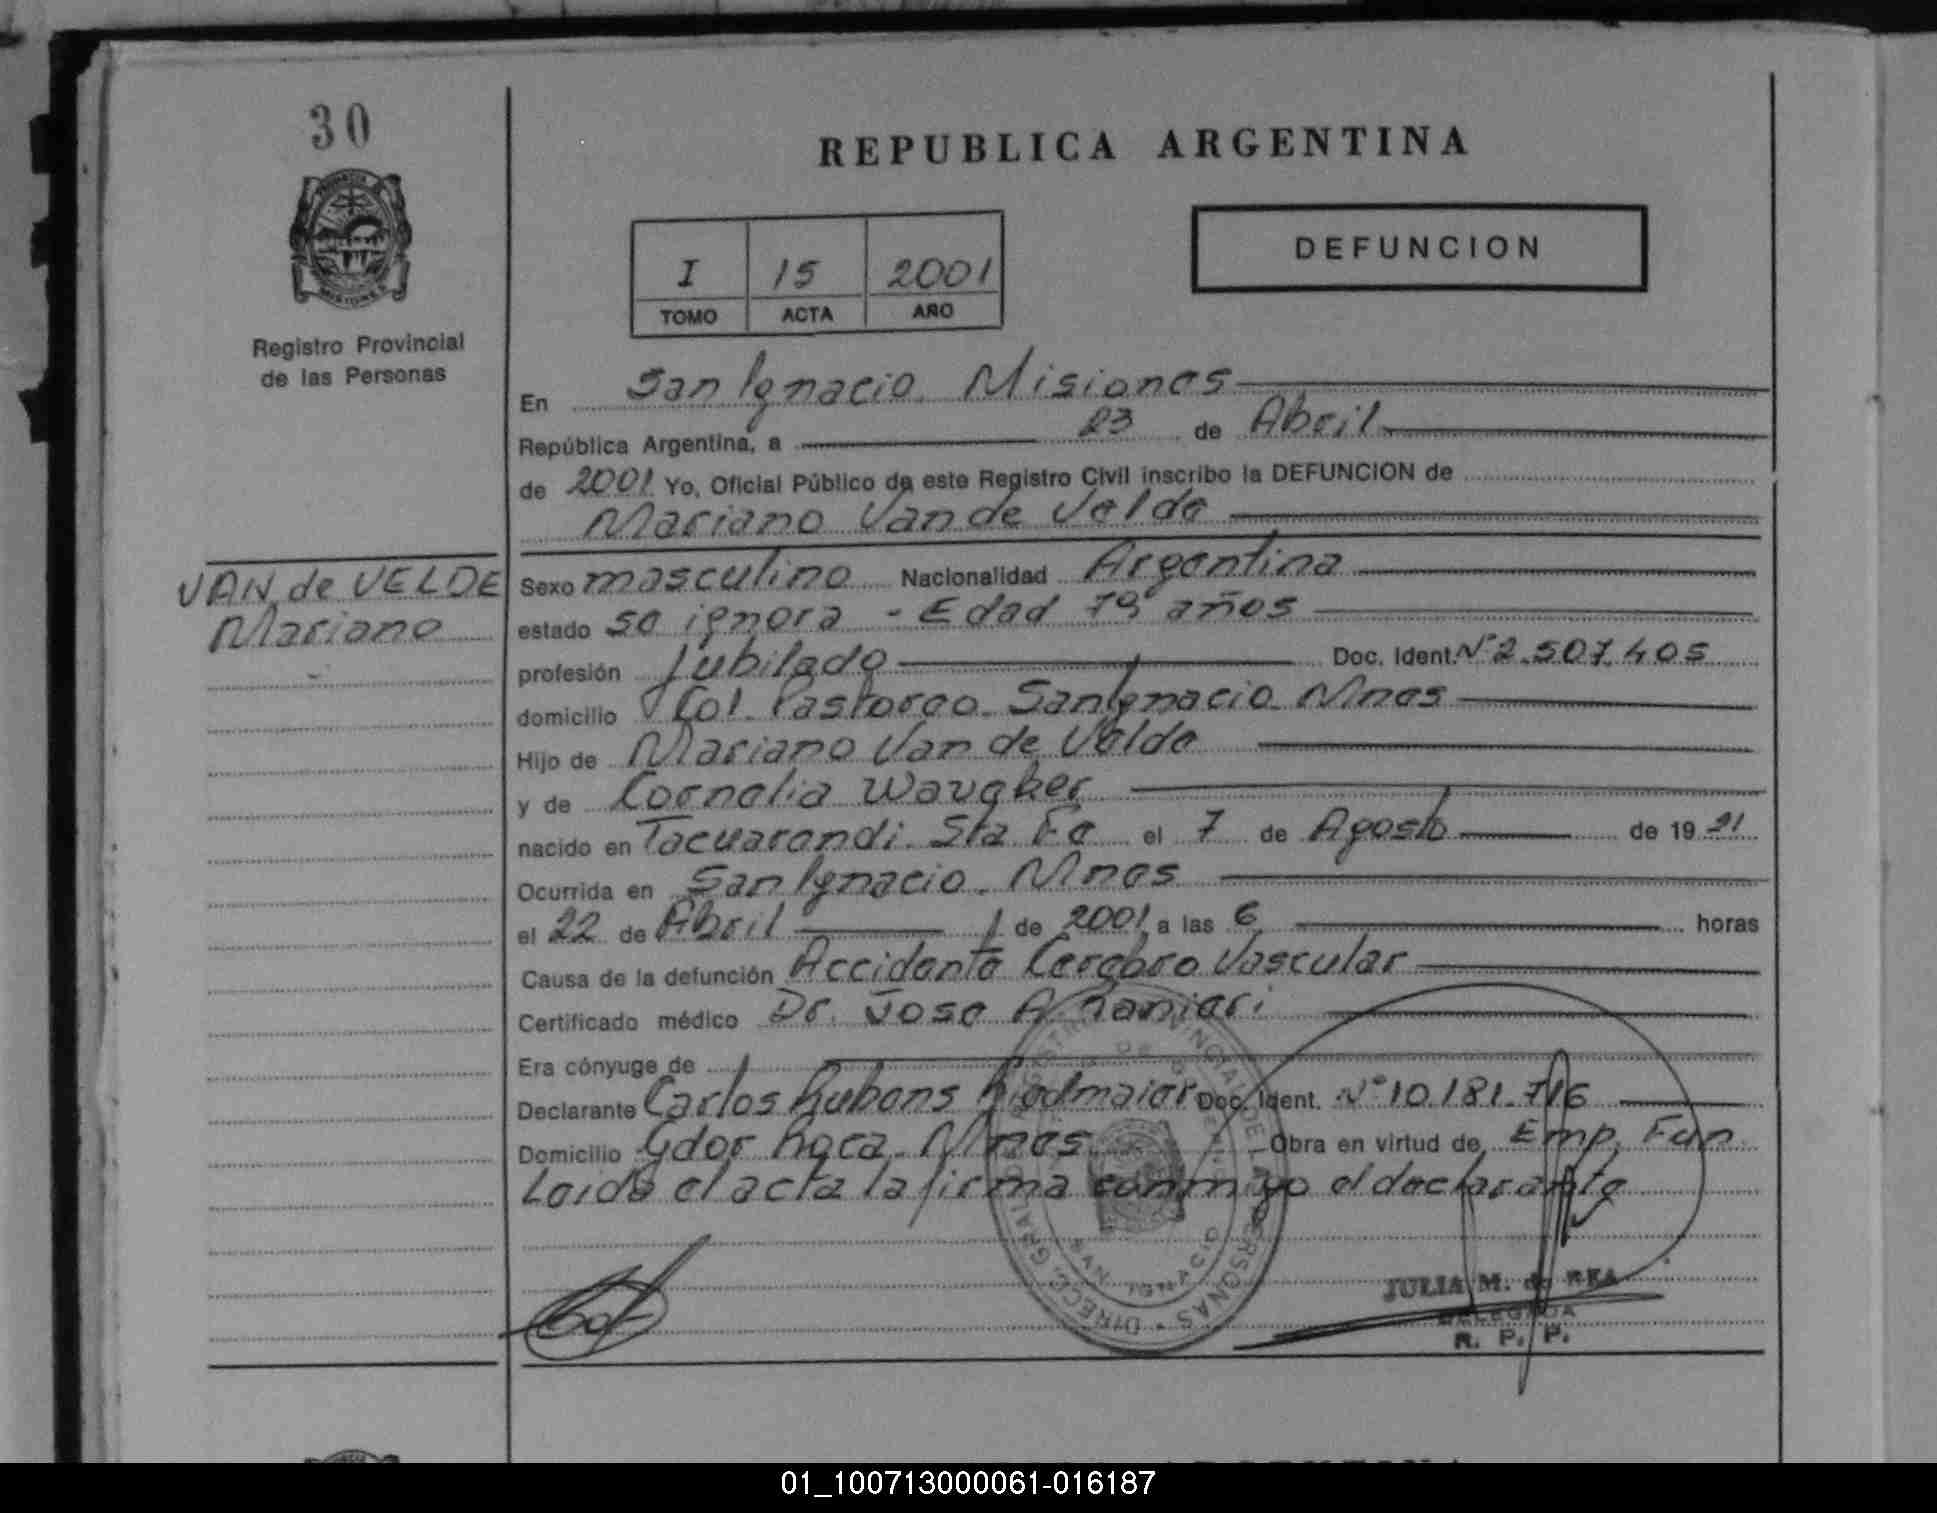 30
Registro Provincial
de las Personas
REPUBLICA ARGENTINA
I 15 2001
TOMO ACTA AÑO
DEFUNCION
En San Ignacio Misiones
República Argentina, a 23 de Abril
de 2001 Yo, Oficial Público de este Registro Civil inscribo la DEFUNCION de
Mariano Van de Velde
VAN de VELDE
Mariano
Sexo masculino Nacionalidad Argentina
estado se ignora - Edad 79 años
profesión Jubilado Doc. Ident. Nº 2.507.405
domicilio Col. Pastoreo San Ignacio Mnes
Hijo de Mariano Van de Velde
y de Cornelia Waugher
nacido en Tacuarendi. Sta Fe el 7 de Agosto de 19 21
Ocurrida en San Ignacio. Mnes
el 22 de Abril de 2001 a las 6 horas
Causa de la defunción Accidente Cerebro Vascular
Certificado médico Dr. Jose A
Era cónyuge de
Declarante Carlos Rubens Riedmaier Doc. Ident. Nº 10.181.716
Domicilio Gdor Roca. Mnes Obra en virtud de Emp. Fun
Leida el acta la firma conmigo el declarante
SAN IGNACIO
JULIA M. de REA
DELEGADA
R. P. P.
01_100713000061-016187